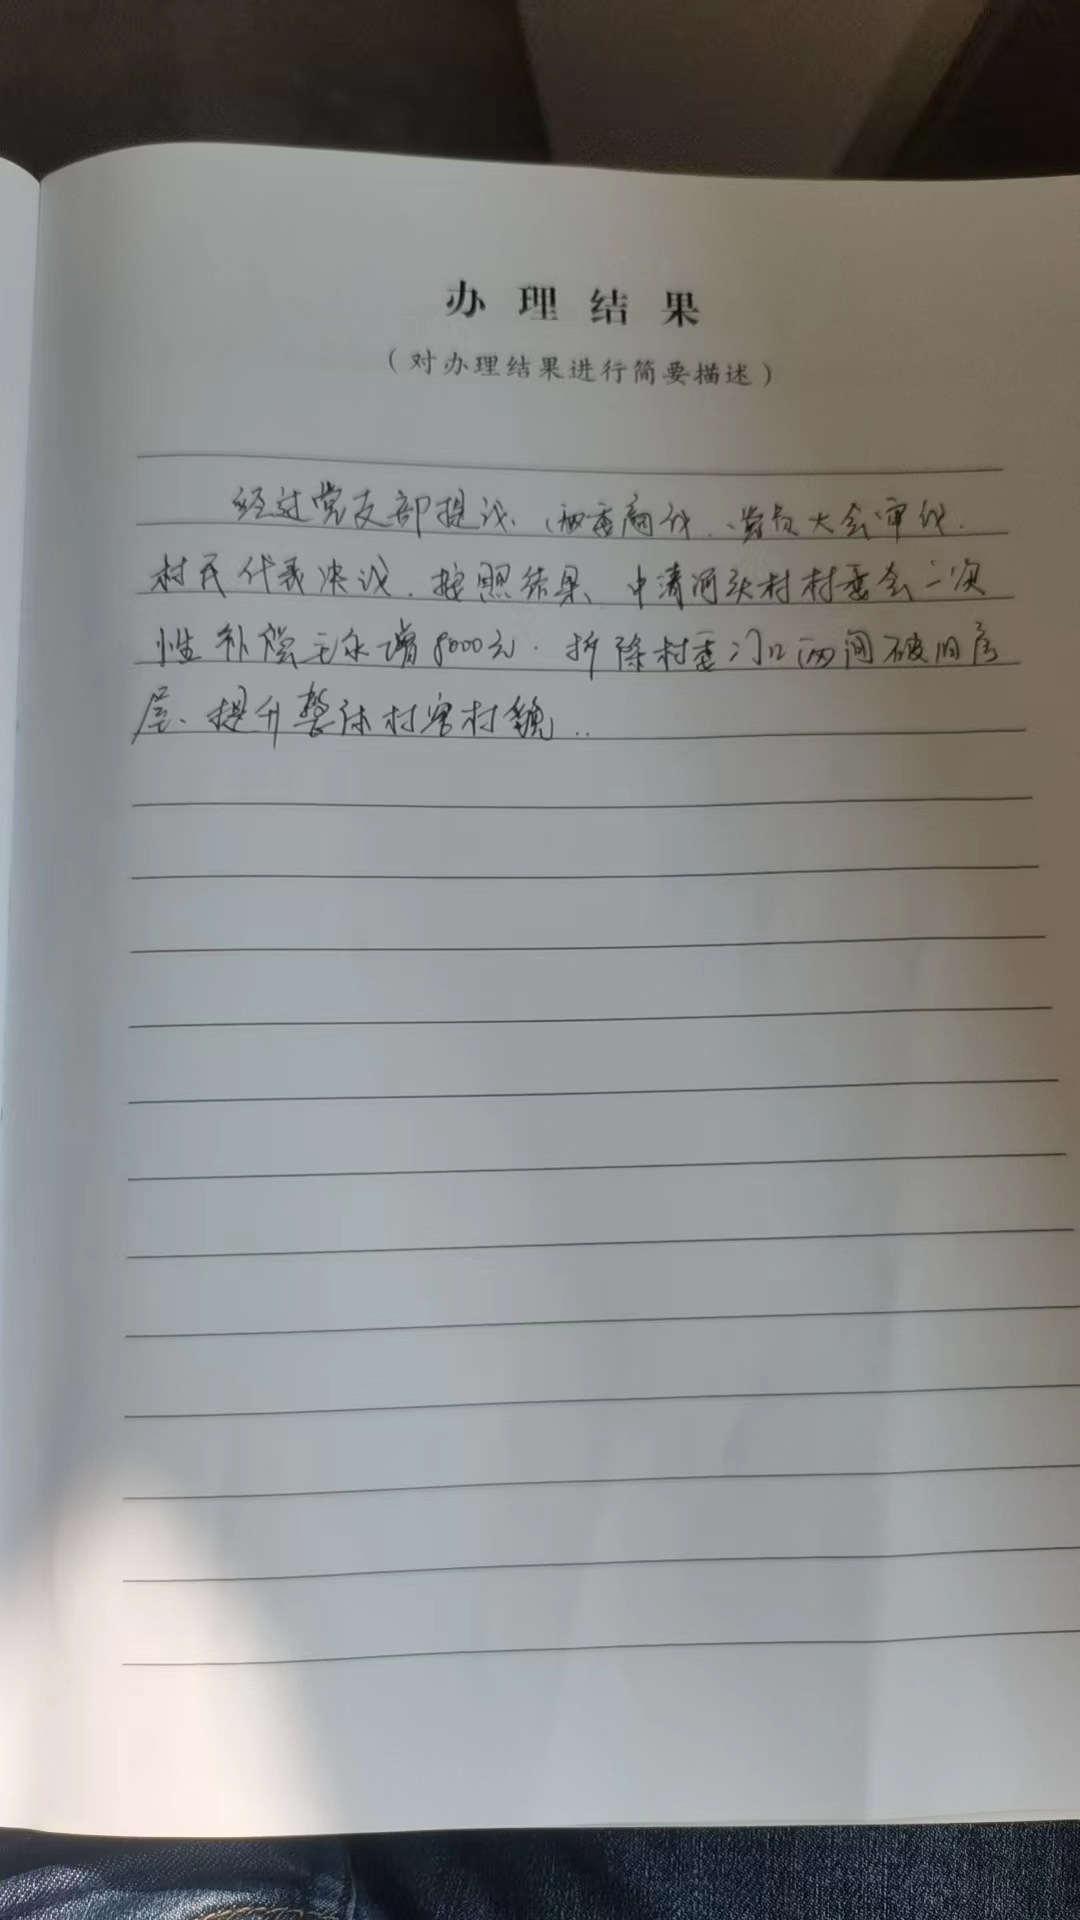 办理结果
(对办理结果进行简要描述)
经过党支部提议、两委商议、党员大会审议、
村民代表决议.按照结果、中清河头村村委会一次
性补偿王永增8000元.拆除村委门口两间破旧房
屋、提升整体村容村貌..